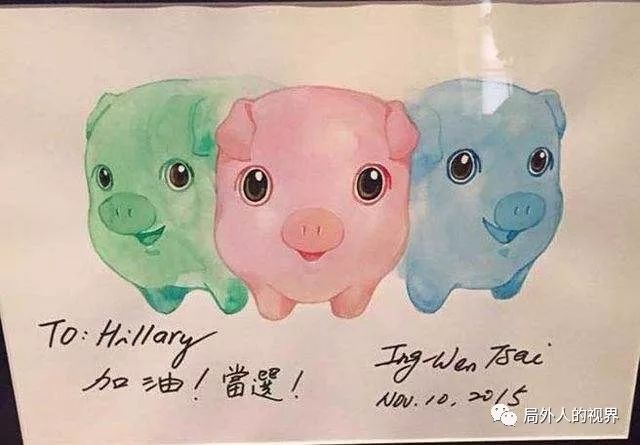 To: Hillary
加油！當選！
Ing-Wen Tsai
Nov. 10, 2015
局外人的视界